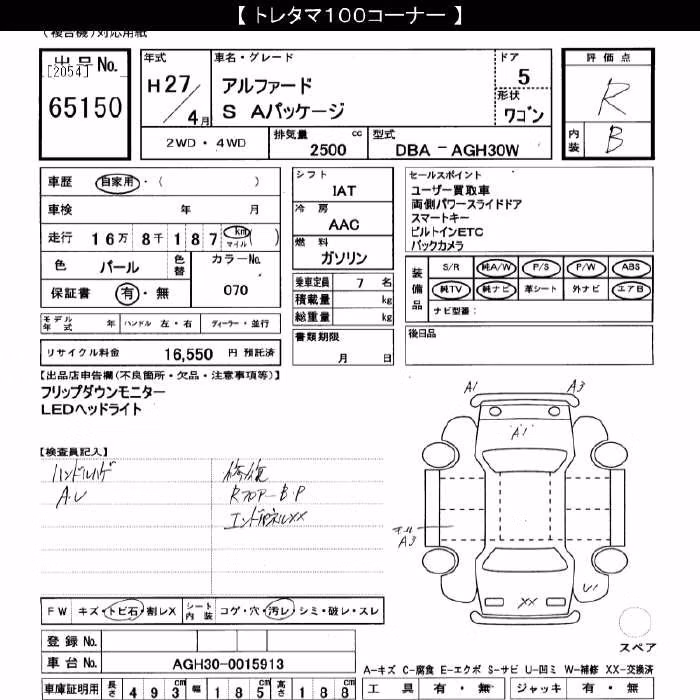 【 トレタマ100コーナー 】
(複合機)対応用紙
出品No.
[2054]
65150
年式
H27/4月
車名・グレード
アルファード
S Aパッケージ
ドア
5
形状
ワゴン
評価点
R
内装
B
2WD・4WD
排気量
2500 cc
型式
DBA － AGH30W
車歴 自家用・( )
車検 年 月
走行 16万 8千187 km マイル ( )
色 パール 色替
カラーNo.
070
保証書 有・無
シフト
IAT
冷房
AAC
燃料
ガソリン
乗車定員 7 名
積載量 kg
総重量 kg
セールスポイント
ユーザー買取車
両側パワースライドドア
スマートキー
ビルトインETC
バックカメラ
装備品
S/R 純A/W P/S P/W ABS
純TV 純ナビ 革シート 外ナビ エアB
ナビ型番:
モデル年式 年 ハンドル 左・右 ディーラー・並行
リサイクル料金 16,550 円 預託済
書類期限
月 日
後日品
【出品店申告欄(不良箇所・欠品・注意事項等)】
フリップダウンモニター
LEDヘッドライト
【検査員記入】
ハンドルハゲ
A.U
修復
RフロアーB.P
エンドパネルXX
A1
A3
A1
A3
U1
XX
スペア
FW キズ・トビ石・割レX
シート内装 コゲ・穴・汚レ・シミ・破レ・スレ
登録No.
車台No. AGH30-0015913
A－キズ C－腐食 E－エクボ S－サビ U－凹ミ W－補修 XX－交換済
車庫証明用 長さ 493 cm 幅 185 cm 高さ 188 cm
工具 有・無 ジャッキ 有・無